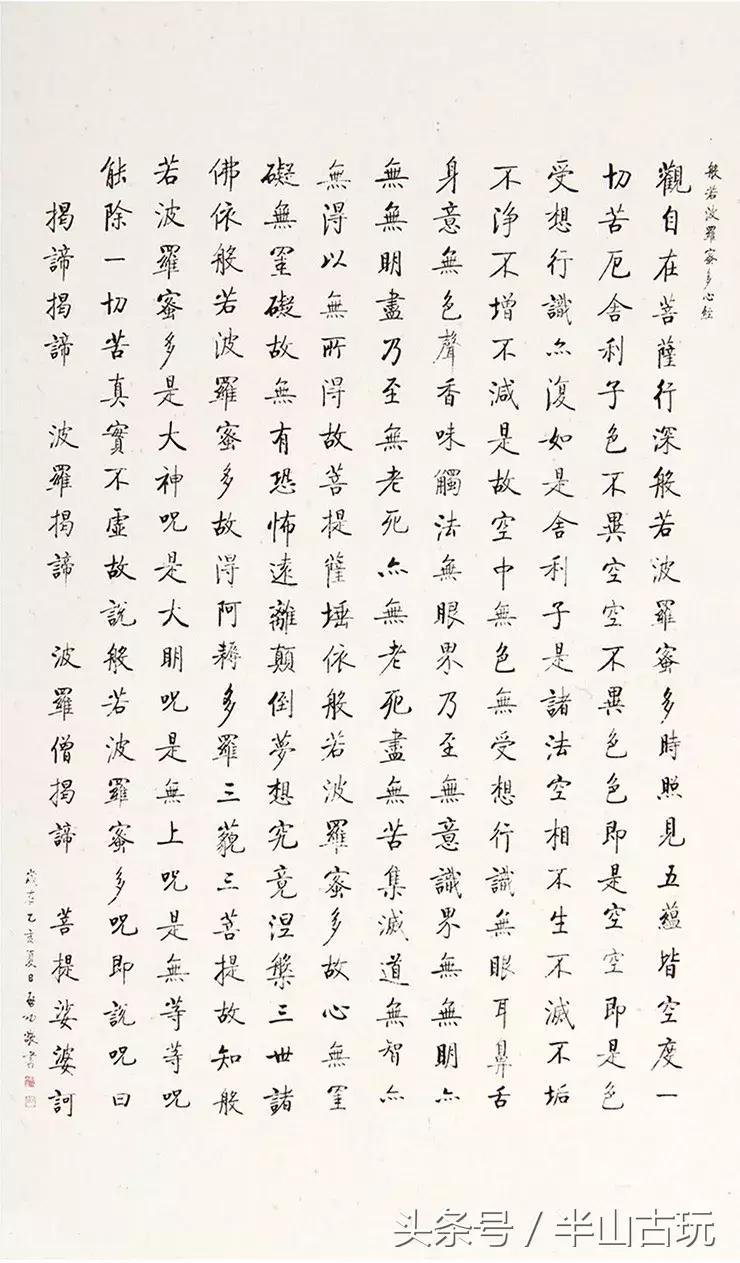 般若波羅蜜多心經
觀自在菩薩行深般若波羅蜜多時照見五蘊皆空度一
切苦厄舍利子色不異空空不異色色即是空空即是色
受想行識亦復如是舍利子是諸法空相不生不滅不垢
不淨不增不減是故空中無色無受想行識無眼耳鼻舌
身意無色聲香味觸法無眼界乃至無意識界無無明亦
無無明盡乃至無老死亦無老死盡無苦集滅道無智亦
無得以無所得故菩提薩埵依般若波羅蜜多故心無罣
礙無罣礙故無有恐怖遠離顛倒夢想究竟涅槃三世諸
佛依般若波羅蜜多故得阿耨多羅三藐三菩提故知般
若波羅蜜多是大神咒是大明咒是無上咒是無等等咒
能除一切苦真實不虛故說般若波羅蜜多咒即說咒曰
揭諦揭諦 波羅揭諦 波羅僧揭諦 菩提娑婆訶
歲在乙亥夏日啟功敬書
头条号/半山古玩